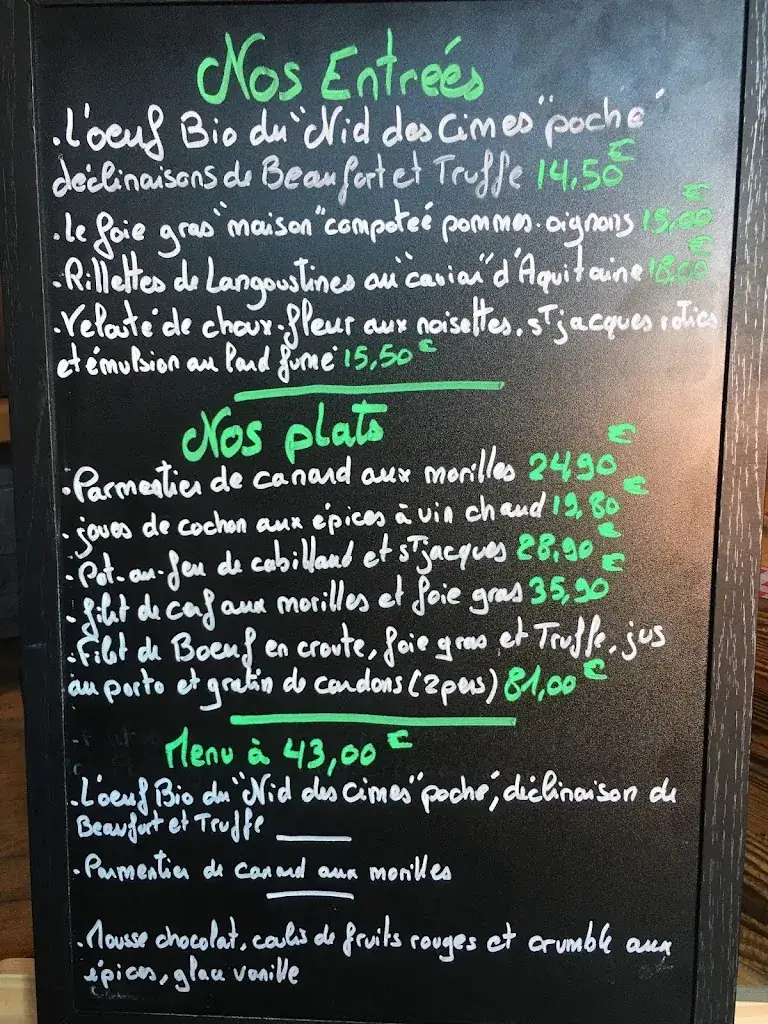 Nos Entrées
.L'oeuf Bio du "Nid des Cimes" poché
déclinaisons de Beaufort et Truffe 14,50€
.Le foie gras "maison" compoteé pommes-oignons 15,00€
.Rillettes de Langoustines au "caviar" d'Aquitaine 18,00€
.Velouté de choux-fleur aux noisettes, sT jacques roties
et émulsion au lard fumé 15,50€
Nos plats
.Parmentier de canard aux morilles 24,90€
.joues de cochon aux épices à vin chaud 19,80€
.Pot-au-feu de cabillaud et sT jacques 28,90€
.filet de cerf aux morilles et foie gras 35,90€
.Filet de Boeuf en croute, foie gras et Truffe, jus
au porto et gratin de cardons (2pers) 81,00€
Menu à 43,00€
.L'oeuf Bio du "Nid des Cimes" poché, déclinaison de
Beaufort et Truffe
.Parmentier de canard aux morilles
.Mousse chocolat, coulis de fruits rouges et crumble aux
épices, glace vanille